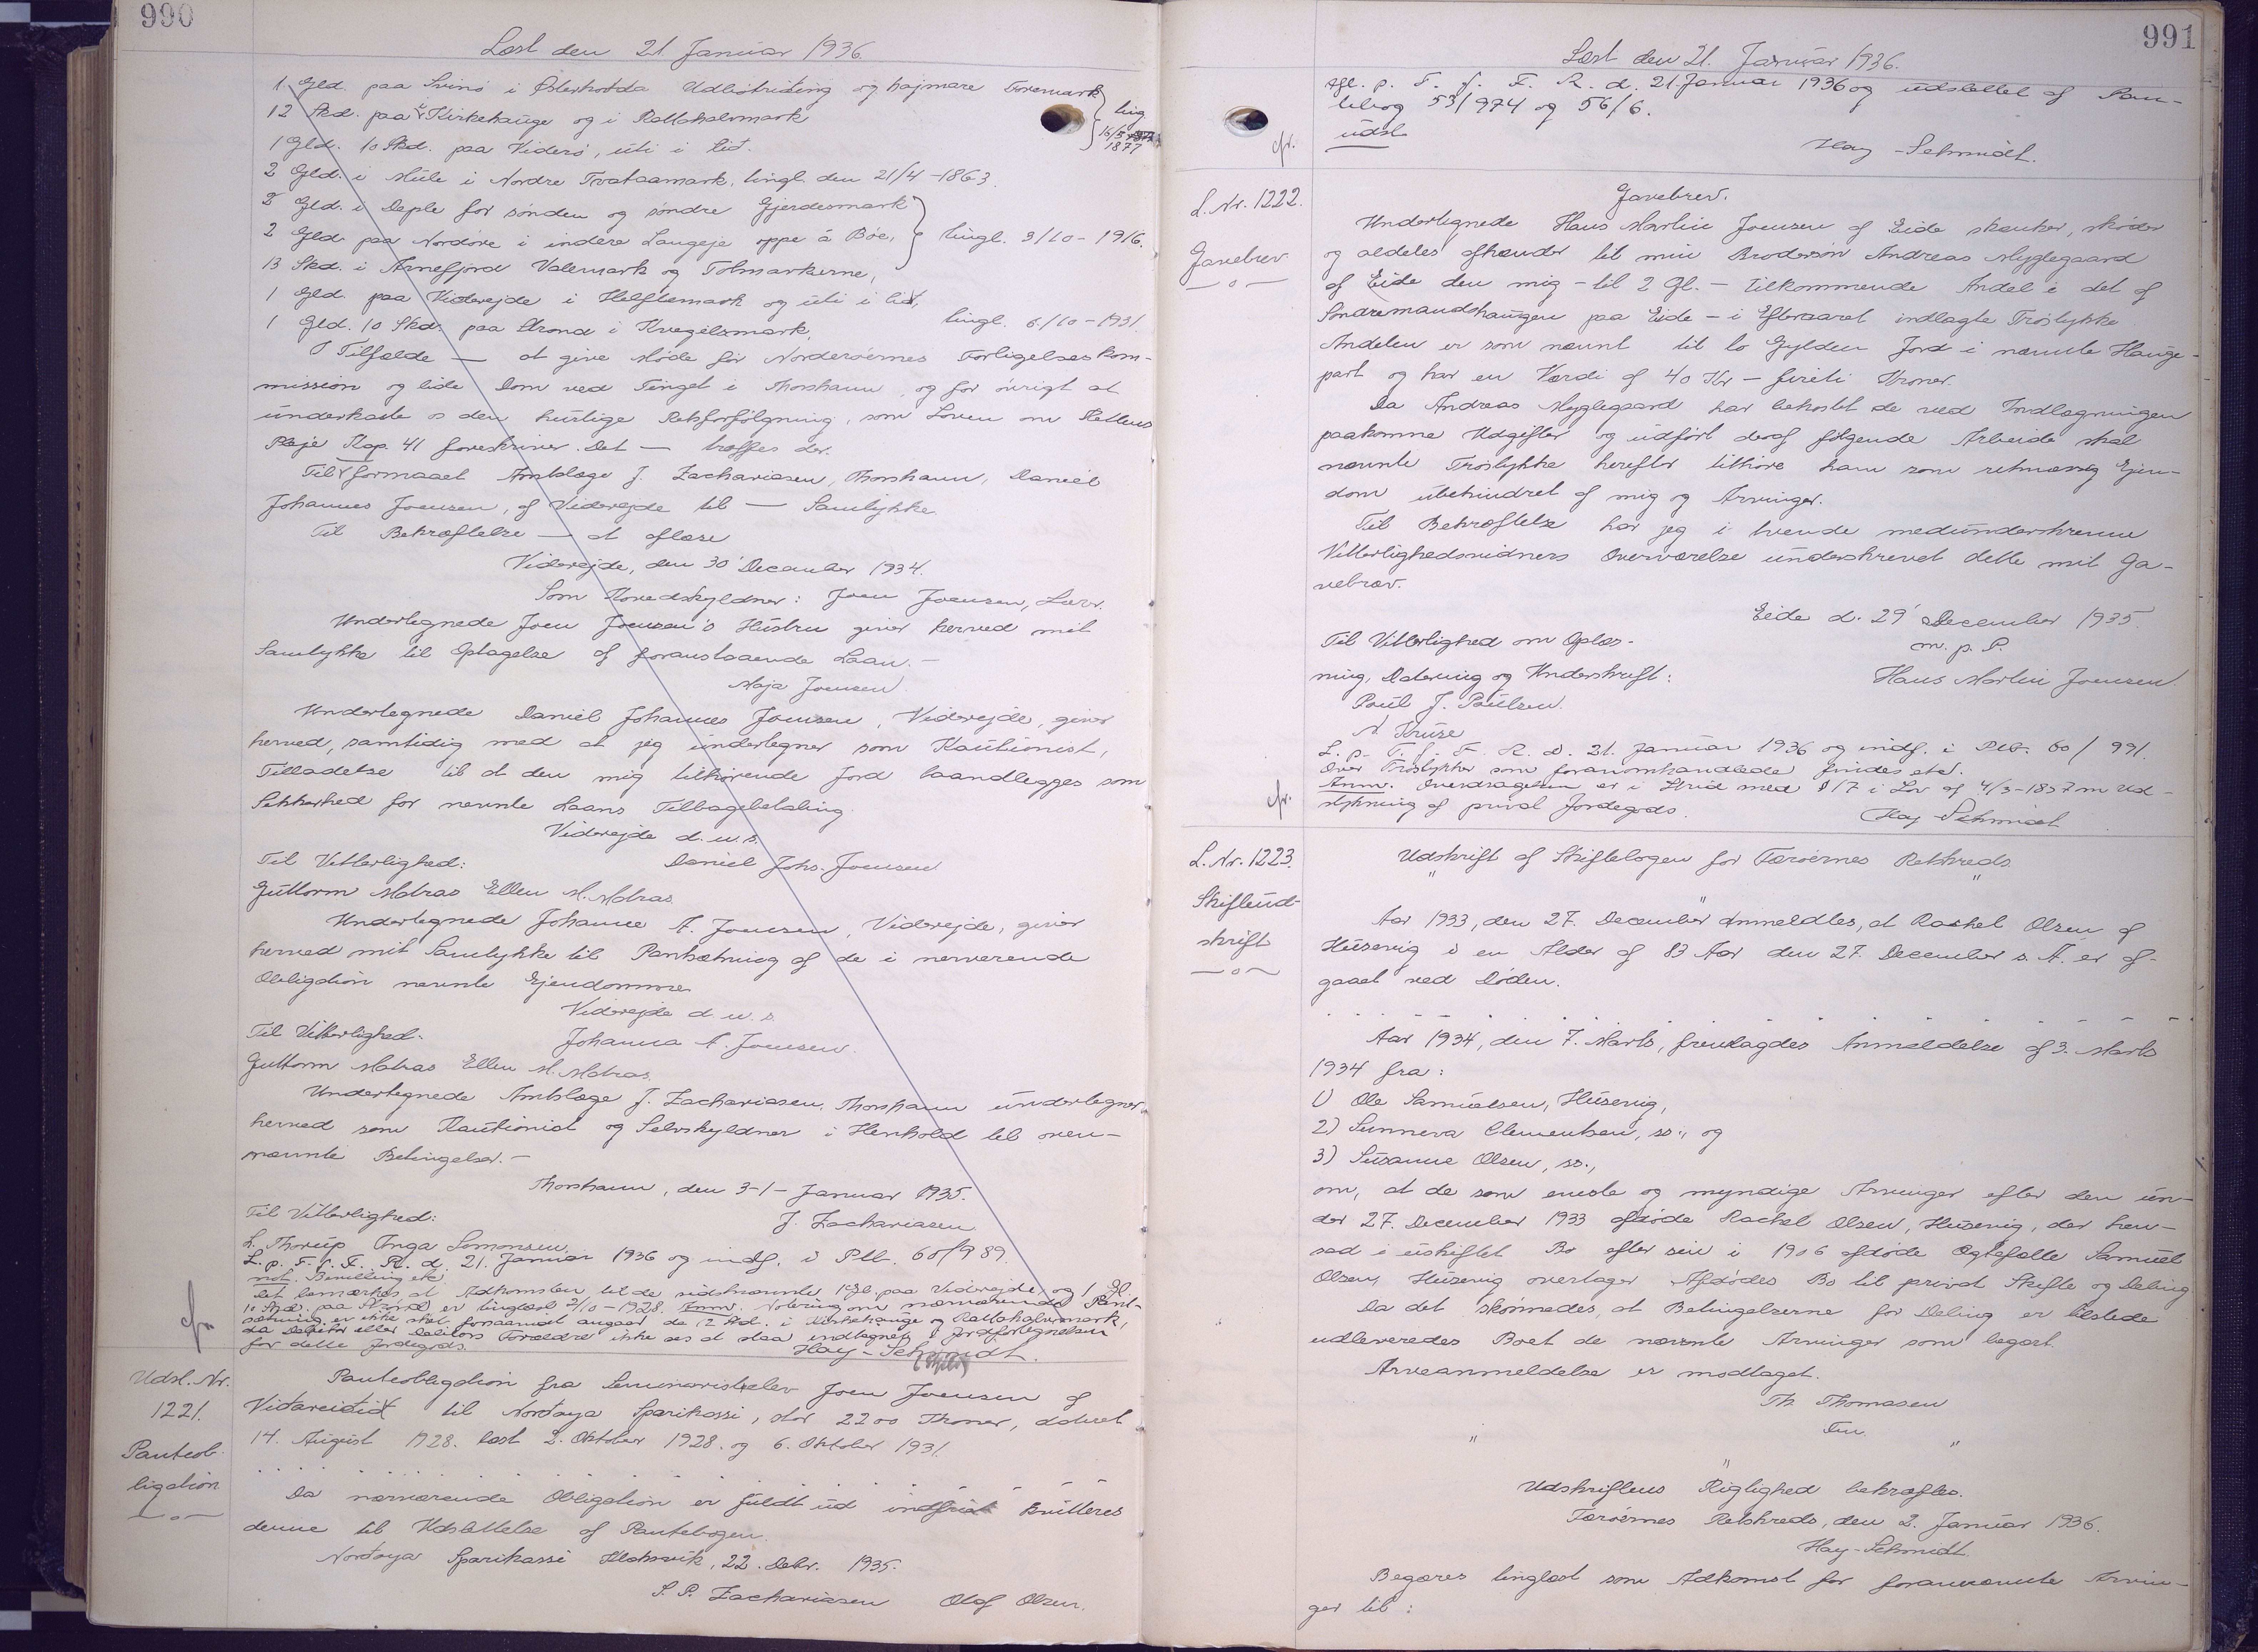 990
Læst den 21 Januar 1936.
1 Gld. paa Svinø i Østerhodda Udbøtriding og hajmare Toremark
12 Skd. paa Kirkehauge og i Rattahalsmark
ting 16/5 1877
1 Gld. 10 Skd. paa Viderø, uti i lid.
2 Gld. i Mule i Nordre Tvataamark, tingl. den 21/4 - 1863.
2 Gld. i Deple for sønden og søndre Gjerdesmark
2 Gld. paa Nordøre i indere Langeje oppe á Bøe,
tingl. 3/10 - 1916.
13 Skd. i Arnefjord Valemark og Tolmarkerne,
1 Gld. paa Viderejde i Helftemark og uti i lid,
1 Gld. 10 Skd. paa Strond i Kvegilsmark,
tingl. 6/10 - 1931.
I Tilfælde — at give Møde for Norderøernes Forligelseskom-
mission og lide Dom ved Tinget i Thorshavn, og for øvrigt at
underkaste os den hurtige Retsforfølgning, som Loven om Rettens
Pleje Kap. 41 foreskriver. Det — træffes der.
Til formaaet Amtslæge J. Zachariasen, Thorshavn, Daniel
Johannes Joensen, af Viderejde til — Samtykke
Til Bekræftelse — at aflæse
Viderejde, den 30' December 1934.
Som Hovedskyldner: Joen Joensen, Lærer.
Undertegnede Joen Joensen's Hustru giver herved mit
Samtykke til Optagelse af foranstaaende Laan.-
Maja Joensen.
Undertegnede Daniel Johannes Joensen, Viderejde, giver
herved, samtidig med at jeg undertegner som Kautionist,
Tilladelse til at den mig tilhørende Jord haandlægges som
Sikkerhed for nævnte Laans Tilbagebetaling.
Viderejde d. u. s.
Til Vitterlighed: Daniel Johs. Joensen
Guttorm Matras Ellen M. Matras.
Undertegnede Johanne A. Joensen, Viderejde, giver
herved mit Samtykke til Pantsætning af de i nærværende
Obligation nævnte Ejendomme
Viderejde d. u. s.
Til Vitterlighed: Johanna A. Joensen.
Guttorm Matras Ellen M. Matras.
Undertegnede Amtslæge J. Zachariasen, Thorshavn undertegner
herved som Kautionist og Selvskyldner i Henhold til oven-
nævnte Betingelser.-
Thorshavn, den 3-1- Januar 1935.
Til Vitterlighed: J. Zachariasen
L. Thorup Inga Simonsen.
L. p. T. f. F. R. d. 21. Januar 1936 og indf. i Ptb. 60/989.
not. Bevilling etc
Det bemærkes at Adkomsten til de sidstnævnte 1 Gl. paa Viderejde og 1 Gl.
10 Skd. paa Strond er tinglæst 2/10-1928. Anm. Notering om nærværende Pant-
sætning er ikke sket forsaavidt angaar de 12 Skd. i Kirkehauge og Rattahalsmark,
da Debitor eller Debitors Forældre ikke ses at staa indtegnet i Jordfortegnelsen
for dette Jordegods.
Hay-Schmidt.
cfr
Udsl. Nr.
1221.
Panteob-
ligation
Panteobligation fra Seminarieelev Joen Joensen af
Vidareidid til Nordoya Sparikassi, stor 2200 Kroner, dateret
14. August 1928. læst 2. Oktober 1928. og 6. Oktober 1931.
Da nærværende Obligation er fuldt ud indfriet kvitteres
denne til Udslettelse af Pantebogen.
Nordoya Sparikassi Klaksvik, 22. Debr. 1935.
S. P. Zachariasen Olaf Olsen.
991
Læst den 21. Januar 1936.
Afl. p. T. f. F. R. d. 21. Januar 1936 og udslettet af Pan-
tebog 53/974 og 56/6.
udsl.
cfr. Hay-Schmidt.
L. Nr. 1222.
Gavebrev
Gavebrev.
Undertegnede Hans Martin Joensen af Eide skænker, skøder
og aldeles afhænder til min Brodersøn Andreas Myglegaard
af Eide den mig - til 2 Gl. - tilkommende Andel i det af
Søndremandshaugen paa Eide - i Efteraaret indlagte Trøstykke
Andelen er som nævnt til to Gylden Jord i nævnte Hauge-
part og har en Værdi af 40 Kr - fireti Kroner.
Da Andreas Myglegaard har bekostet de ved Indlægningen
paakomne Udgifter og udført deraf følgende Arbeide skal
nævnte Trøstykke herefter tilhøre ham som retmæssig Ejen-
dom ubehindret af mig og Arvinger.
Til Bekræftelse har jeg i tvende medunderskrevne
Vitterlighedsvidners Overværelse underskrevet dette mit Ga-
vebrev.
Eide d. 29' December 1935.
Til Vitterlighed om Oplæs- m. p. P.
ning, Datering og Underskrift: Hans Martin Joensen
Poul J. Poulsen.
A Kruse
L. p. T. f. F. R. D. 21. Januar 1936 og indf. i Ptb. 60/991.
Over Trøstykker som foranomhandlede findes etc.
Anm. Overdragelsen er i Strid med § 17 i Lov af 4/3-1857 om Ud-
stykning af privat Jordegods.
cfr. Hay-Schmidt
L. Nr. 1223.
Skifteud-
skrift
Udskrift af Skiftebogen for Færøernes Retskreds.
Aar 1933, den 27. December anmeldtes, at Rachel Olsen af
Husevig i en Alder af 83 Aar den 27. December s. A. er af-
gaaet ved Døden.
Aar 1934, den 7. Marts, fremlagdes Anmeldelse af 3. Marts
1934 fra:
1) Ole Samuelsen, Husevig,
2) Sunneva Clementsen, ss., og
3) Susanne Olsen, ss.,
om, at de som eneste og myndige Arvinger efter den un-
der 27. December 1933 afdøde Rachel Olsen, Husevig, der hen-
sad i uskiftet Bo efter sin i 1906 afdøde Ægtefælle Samuel
Olsen, Husevig overtager Afdødes Bo til privat Skifte og Deling
Da det skønnedes, at Betingelserne for Deling er tilstede
udleveredes Boet de nævnte Arvinger som begært.
Arveanmeldelse er modtaget.
Th. Thomasen
Fm.
Udskriftens Rigtighed bekræftes.
Færøernes Retskreds, den 2. Januar 1936.
Hay-Schmidt.
Begæres tinglæst som Adkomst for forannævnte Arvin-
ger til: